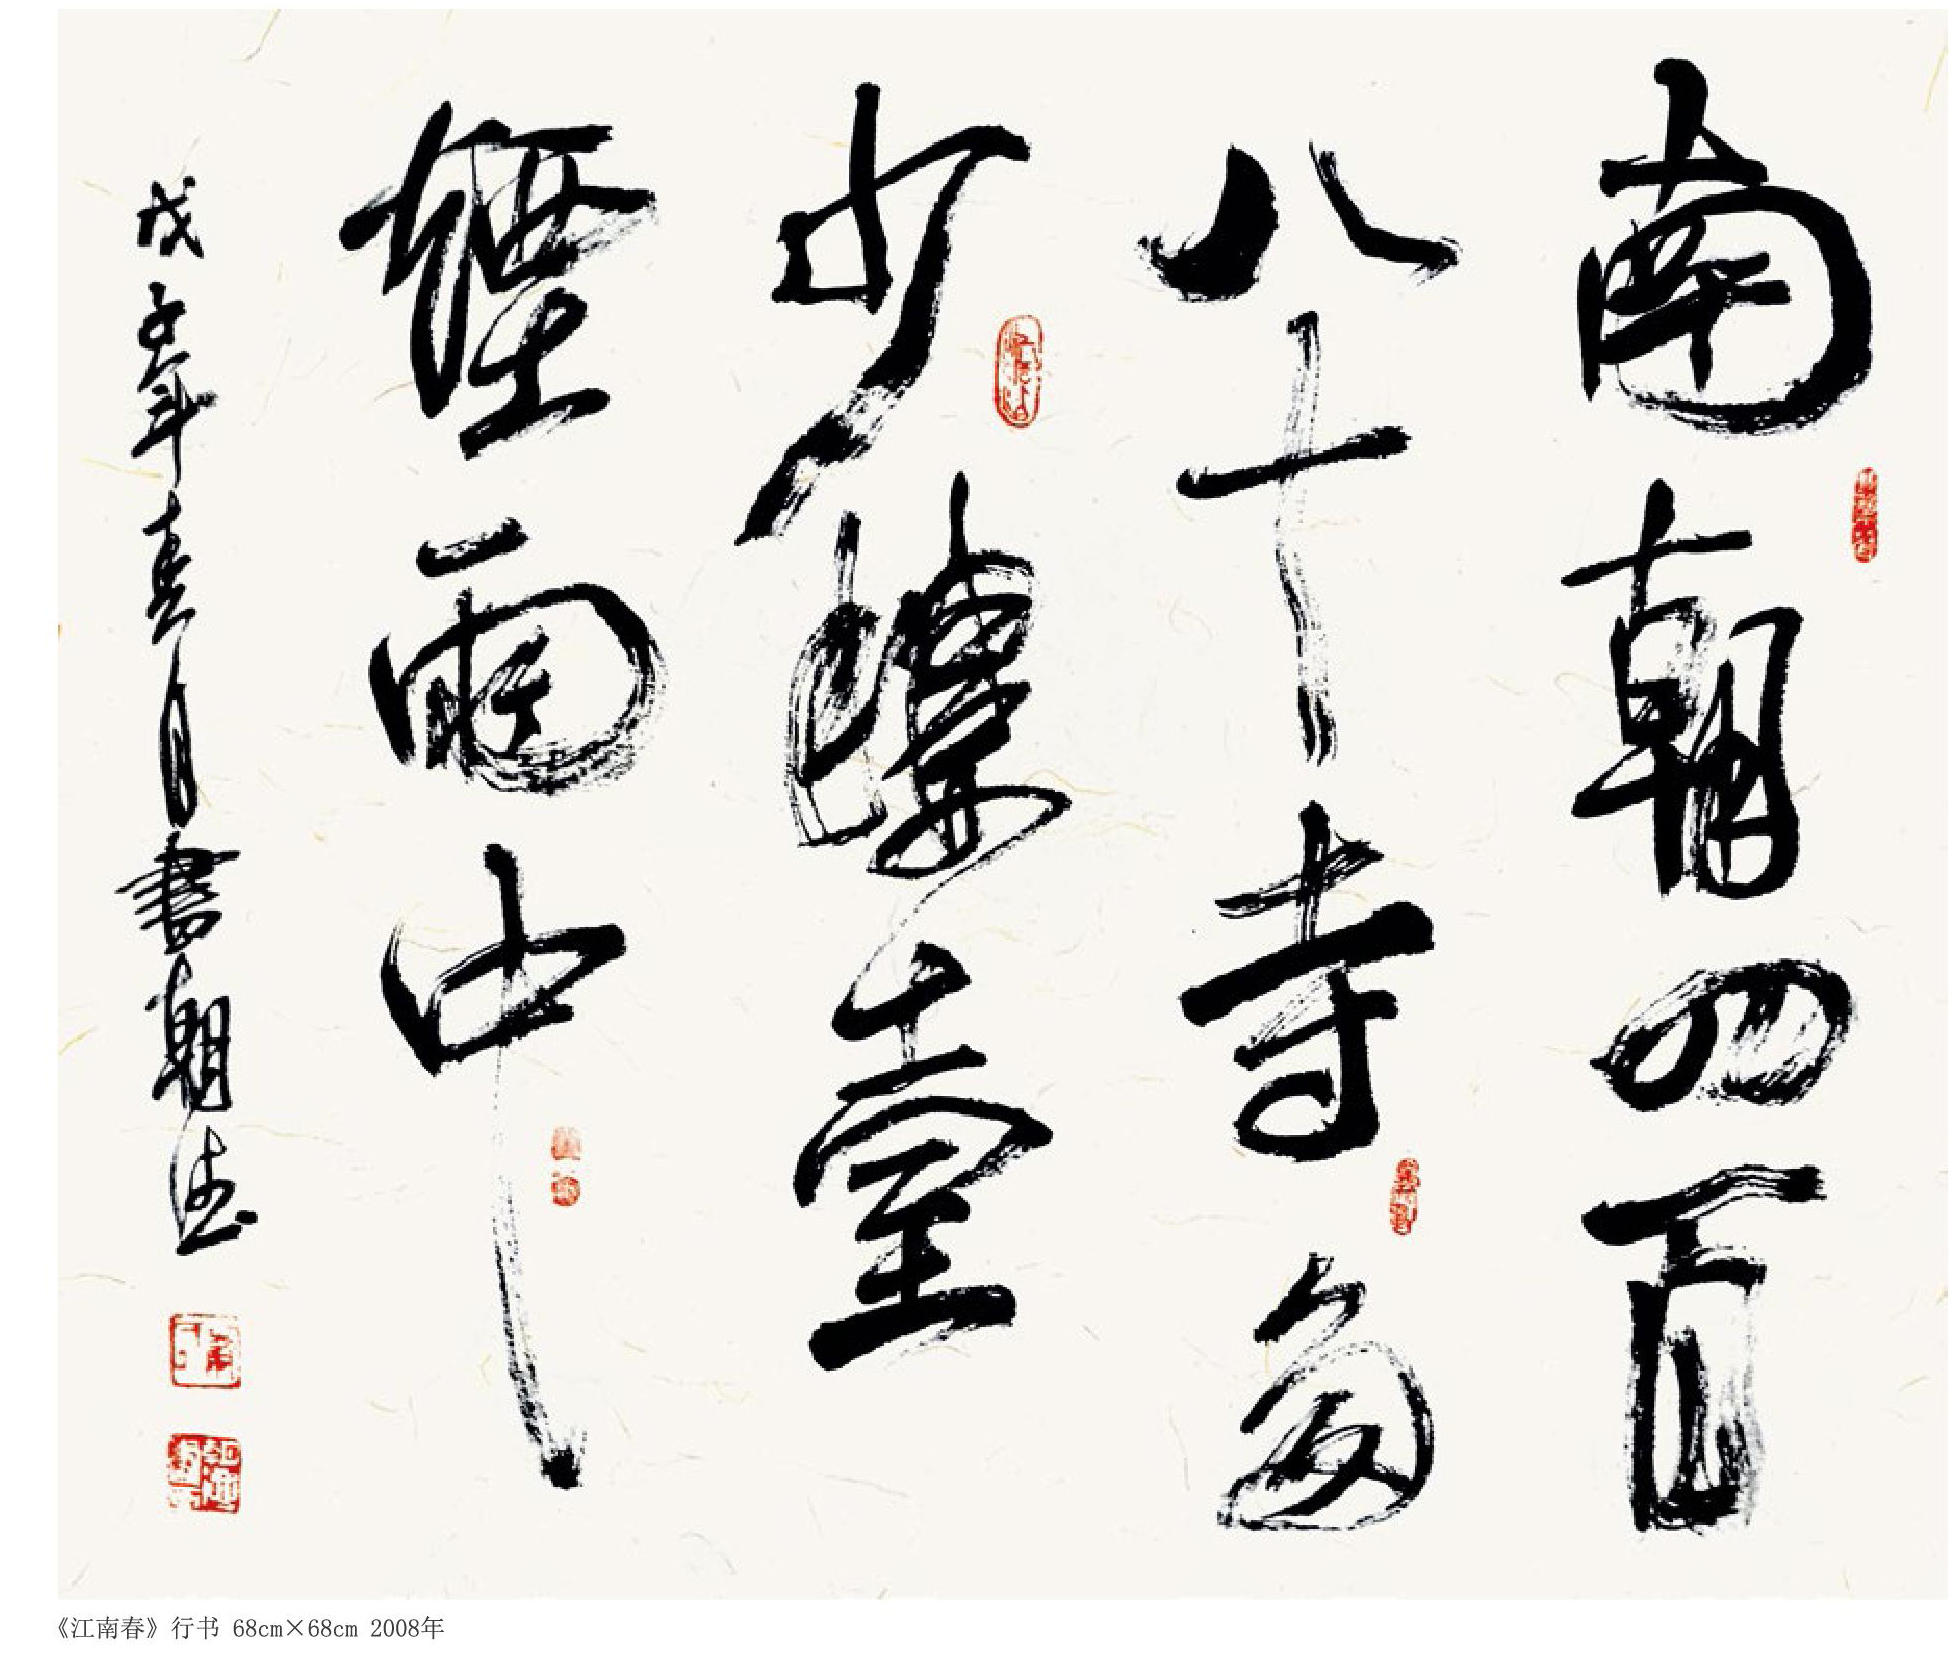 南朝四百
八十寺多
少楼臺
煙雨中
戊子年春月書朝法
《江南春》行书 68cm×68cm 2008年